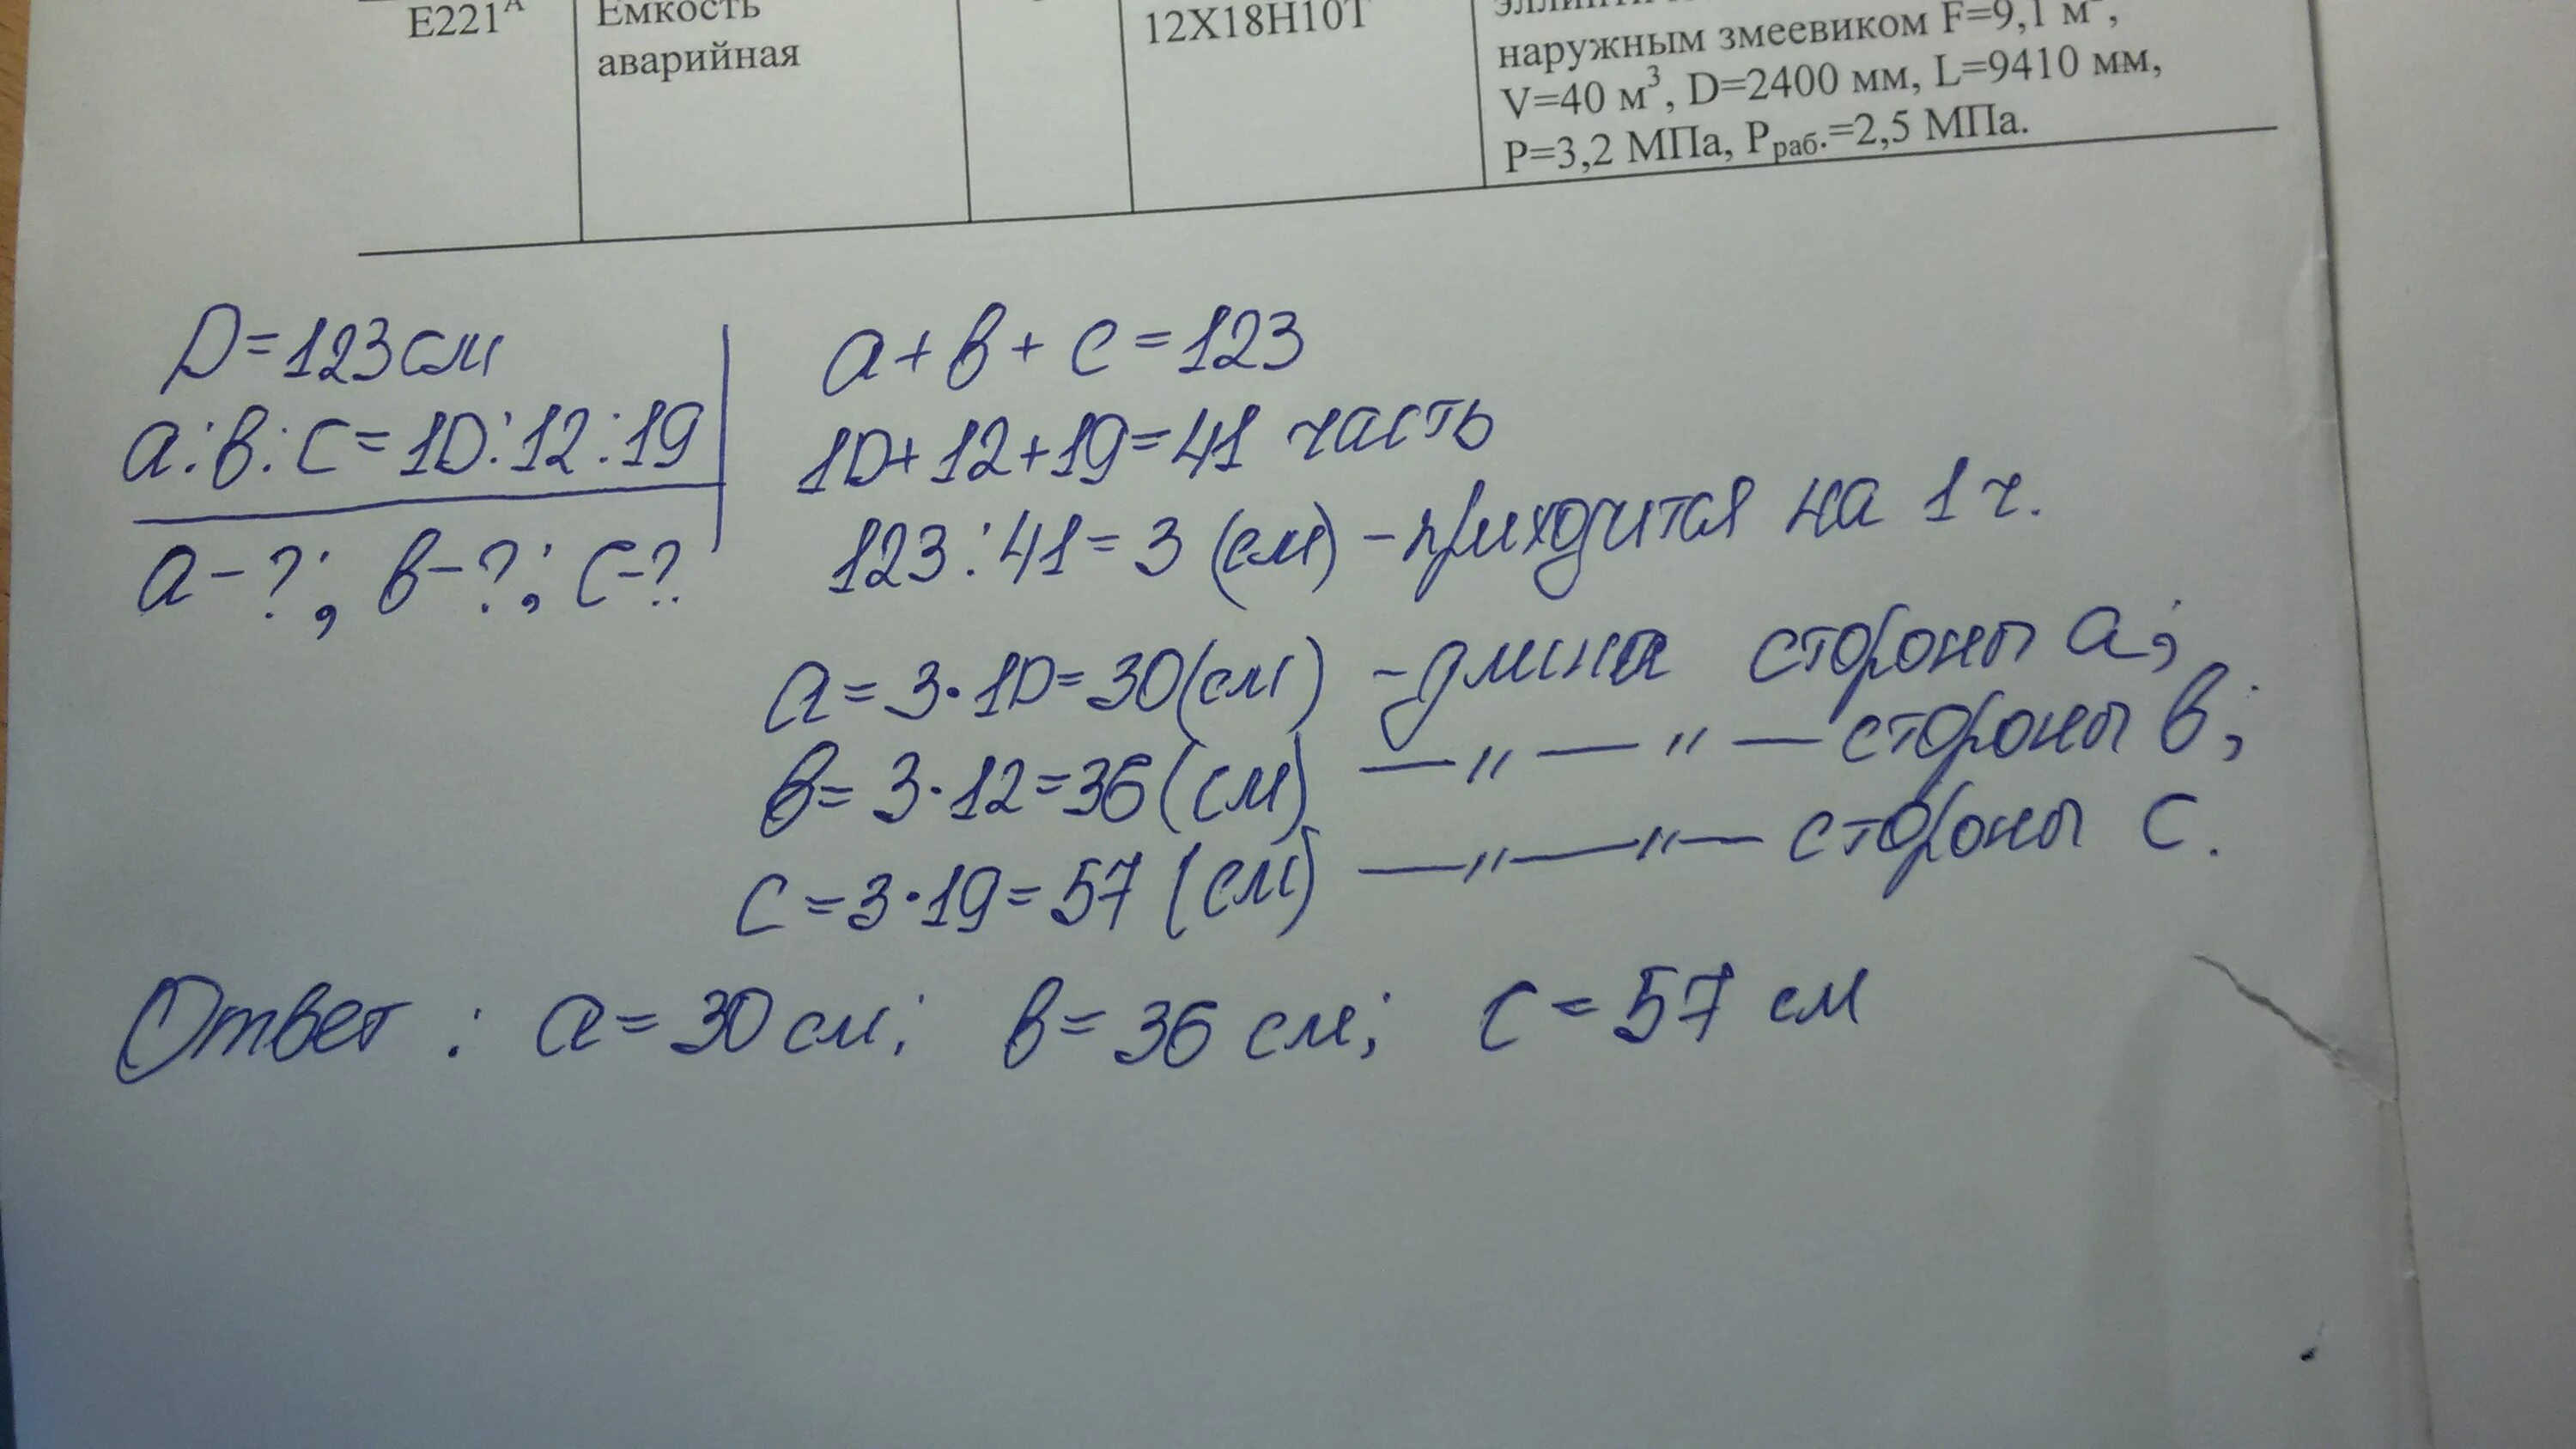 Е221А
Емкость
аварийная
12Х18Н10Т
наружным змеевиком F=9,1 м²,
V=40 м³, D=2400 мм, L=9410 мм,
P=3,2 МПа, Pраб.=2,5 МПа.
D=123см
а:в:с=10:12:19
а-?; в-?; с-?
а+в+с=123
10+12+19=41 часть
123:41=3 (см) - приходится на 1 ч.
а=3·10=30(см) - длина стороны а;
в=3·12=36(см) —„—"— стороны в;
с=3·19=57 (см) —„—"— стороны с.
Ответ: а=30 см; в=36 см; с=57 см